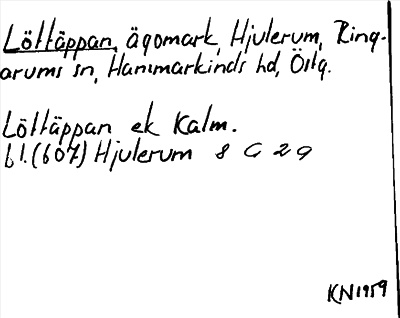 Löttäppan, ägomark, Hjulerum, Ring-
arums sn, Hammarkinds hd, Östg.
Löttäppan ek Kalm.
bl.(607) Hjulerum 8 G 2 g
KN1959